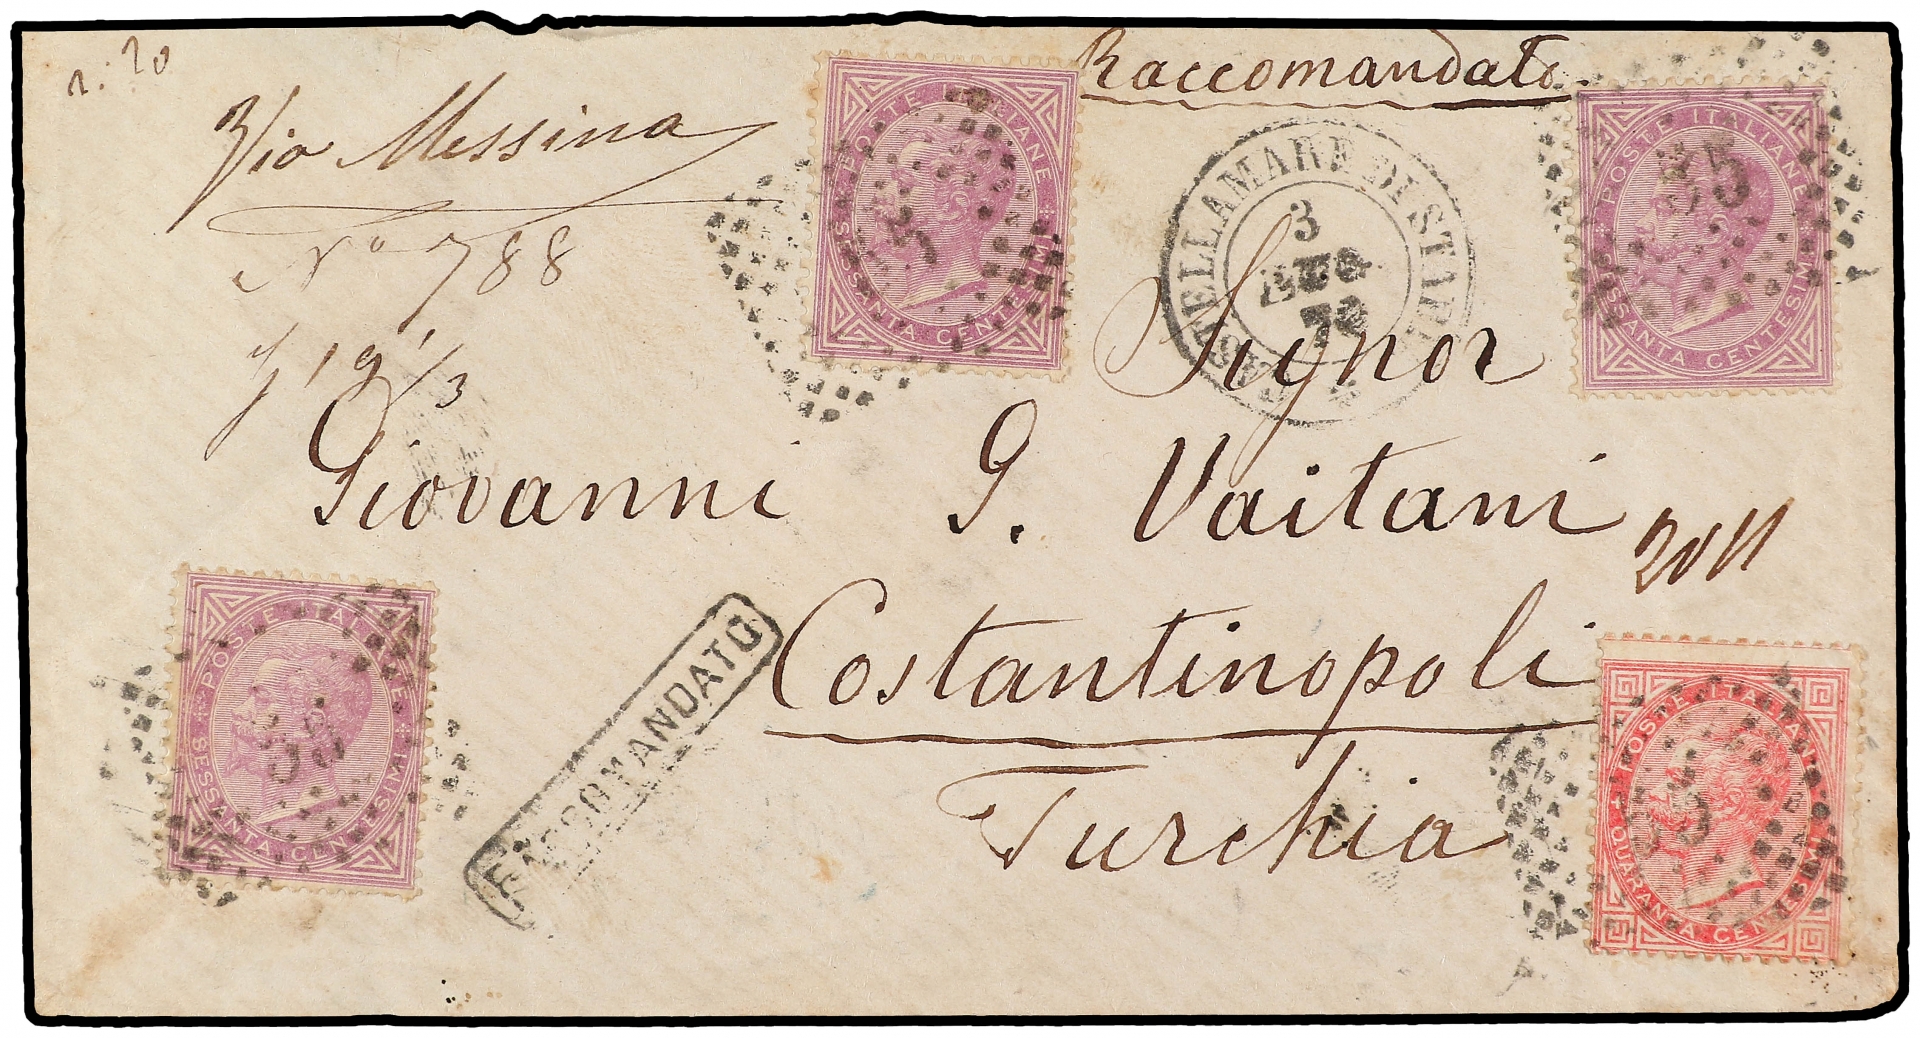 n. 20
Raccomandato
Via Messina
N° 788
POSTE ITALIANE
SESSANTA CENTESIMI
CASTELLAMARE DI STABIA
3
AGO
POSTE ITALIANE
SESSANTA CENTESIMI
35
Signor
Giovanni G. Vaitani
Costantinopoli
Turchia
RACCOMANDATO
POSTE ITALIANE
SESSANTA CENTESIMI
POSTE ITALIANE
QUARANTA CENTESIMI